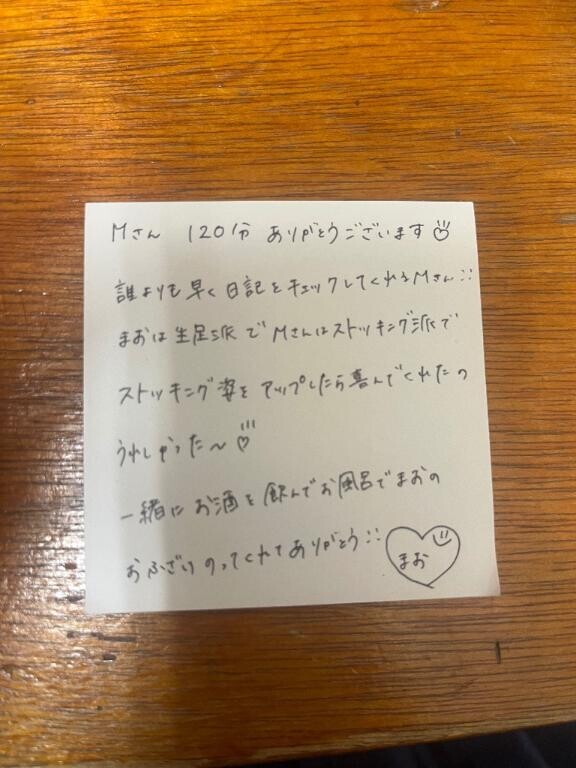 Mさん 120分 ありがとうございます♡
誰よりも早く日記をチェックしてくれるMさん::
まおは生足派でMさんはストッキング派で
ストッキング姿をアップしたら喜んでくれたの
うれしかった〜♡
一緒にお酒を飲んでお風呂でまおの
おふざけのってくれてありがとう::
まお